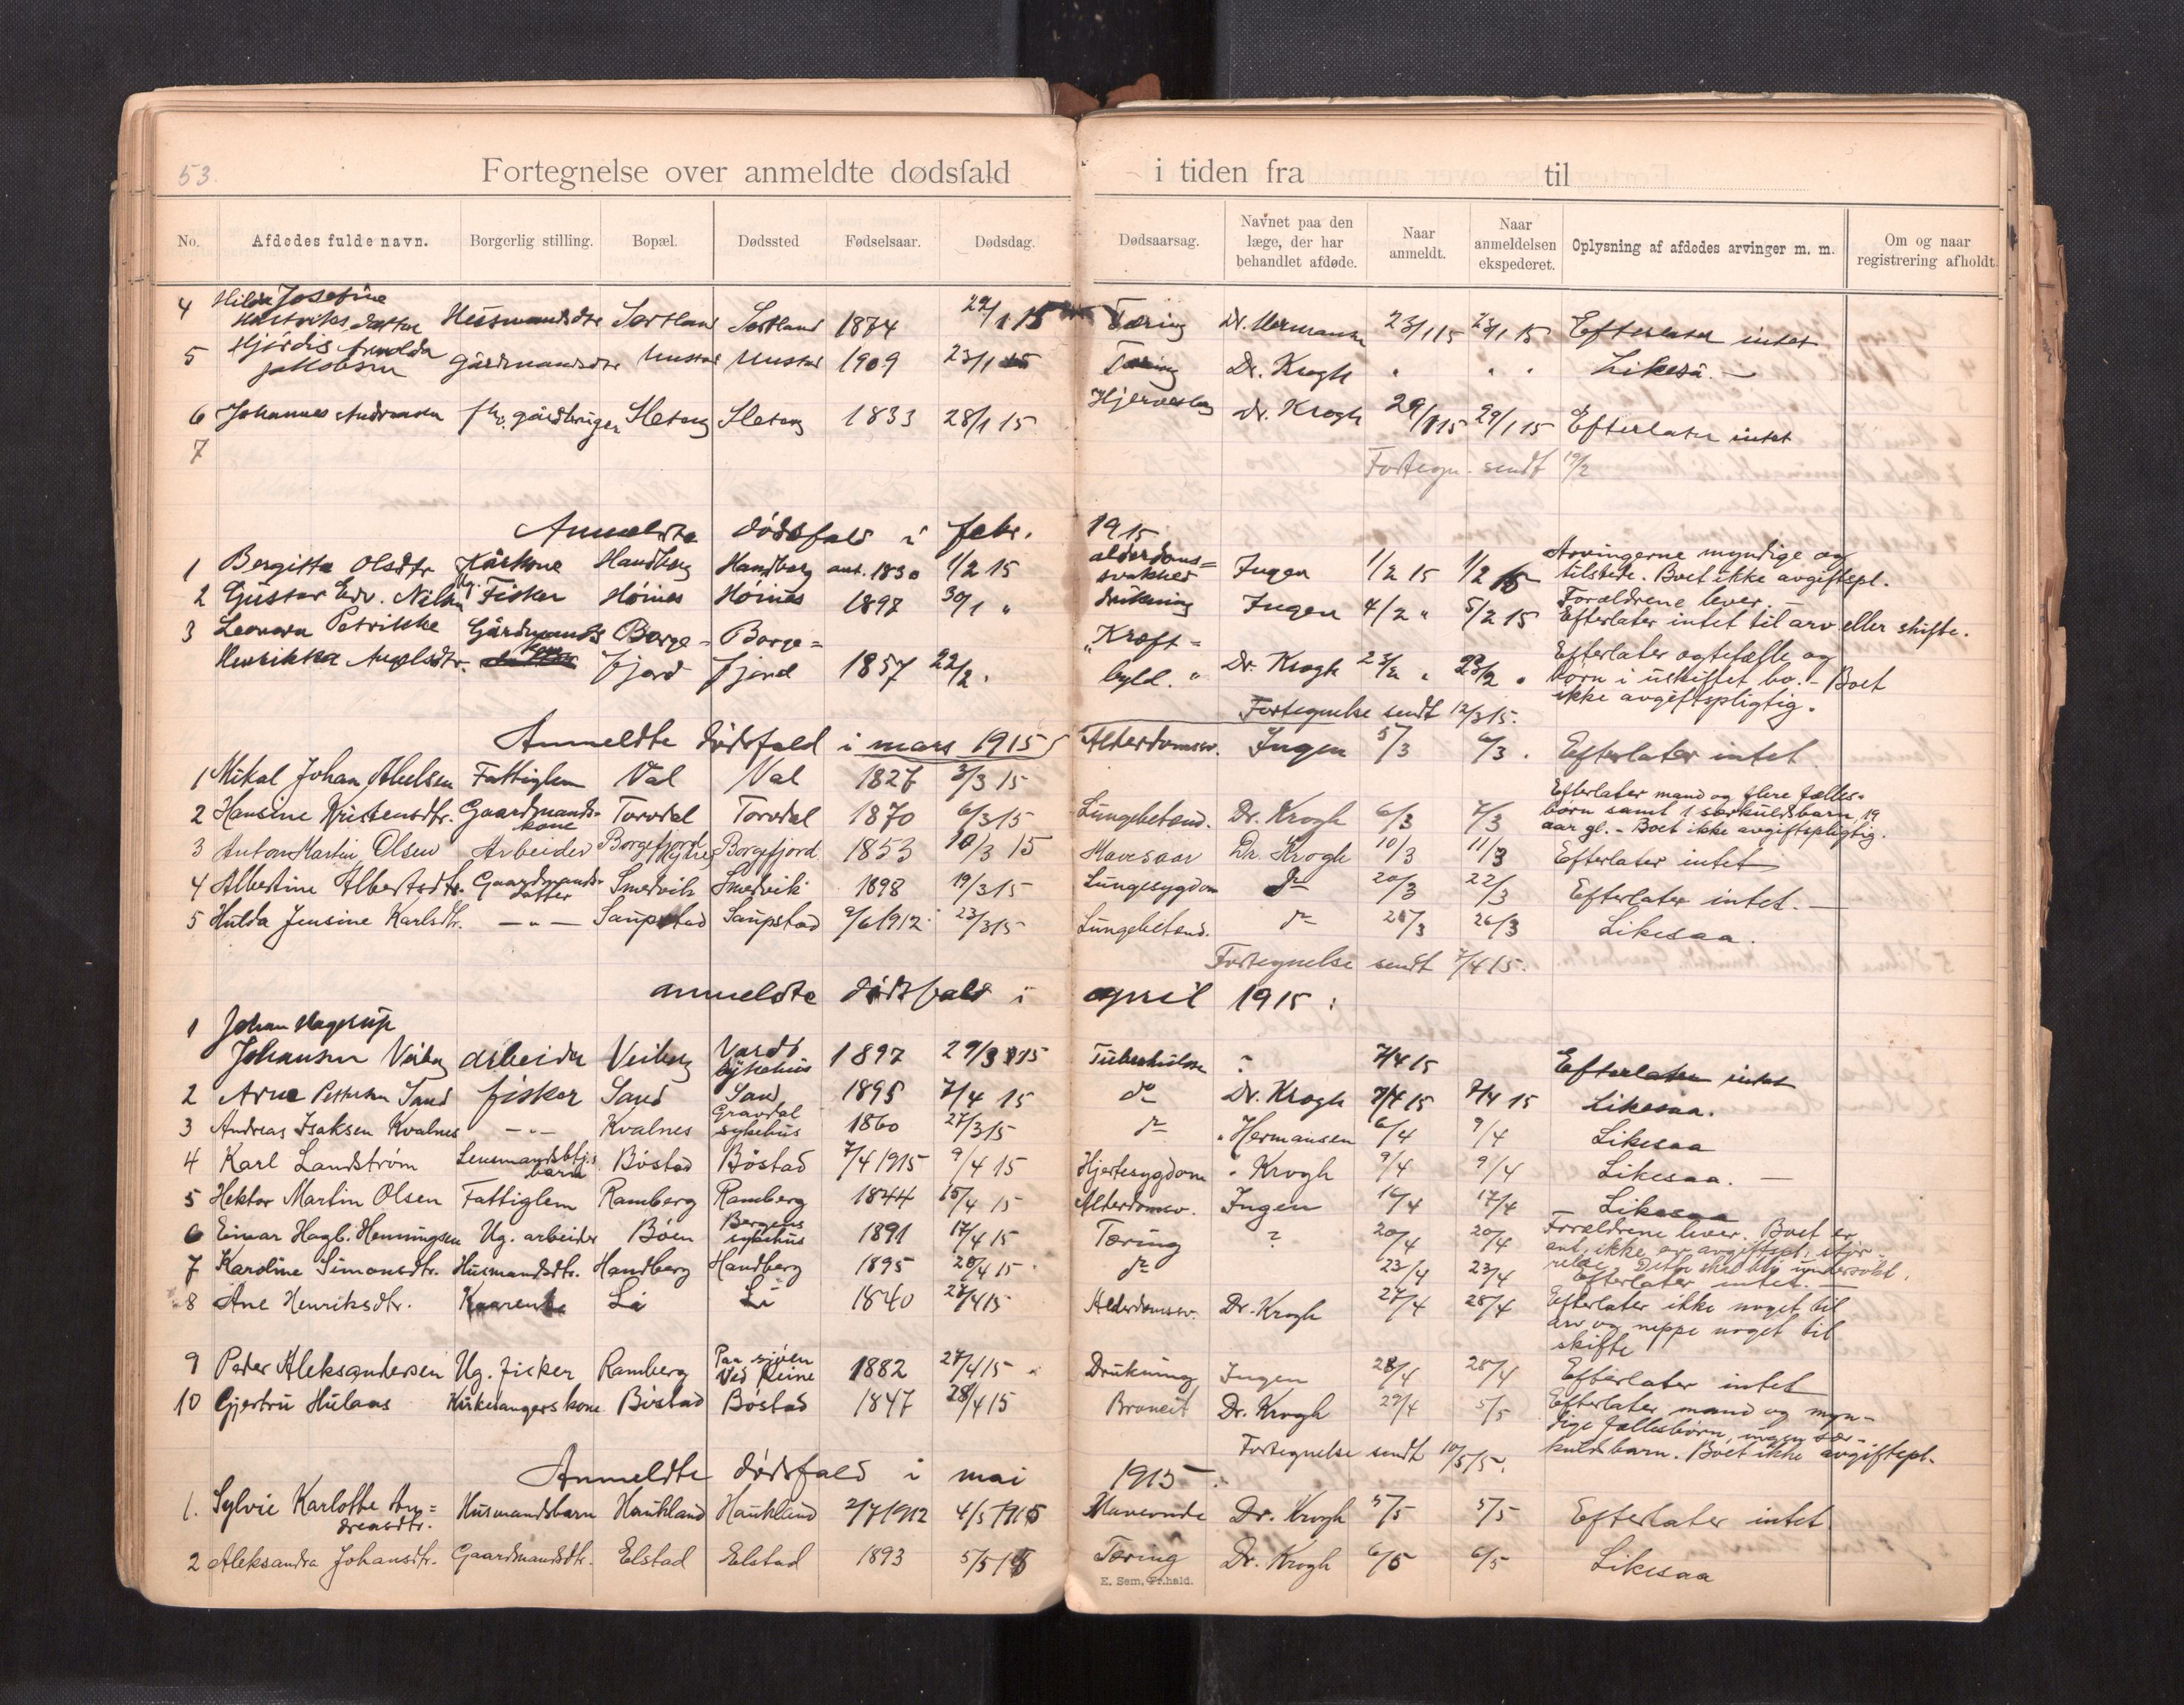 53.
Fortegnelse over anmeldte dødsfald i tiden fra til
No. Afdødes fulde navn. Borgerlig stilling. Bopæl. Dødssted Fødselsaar. Dødsdag. Dødsaarsag. Navnet paa den læge, der har behandlet afdøde. Naar anmeldt. Naar anmeldelsen ekspederet. Oplysning af afdødes arvinger m. m. Om og naar registrering afholdt.
4 Hilda Josefine Husmandsdtr Sortland Sortland 1874 22/1 15 Tæring Dr. 23/1 15 23/1 15 Efterlater intet
5 Hjørdis Jakobsen Gårdmandsdtr 1909 23/1 15 Tæring Dr. Krogh " " " Likeså. —
6 Johannes Andreassen fhv. gårdbruger 1833 28/1 15 Dr. Krogh 29/1 15 29/1 15 Efterlater intet
7
Fortegn. sendt 19/2
Anmeldte dødsfald i febr. 1915
1 Bergitte Olsdtr Kårkone Handberg Handberg ant. 1830 1/2 15 alderdoms= svakhed Ingen 1/2 15 1/2 15 Arvingerne myndige og tilstede. Boet ikke avgiftspl.
2 Gustav Edv. Nilsen Ug. Fisker Høines Høines 1897 30/1 " drukning Ingen 4/2 " 5/2 15 Forældrene lever. — Efterlater intet til arv eller skifte.
3 Leonora Petrikke Henrikka Gårdmands kone Borge= fjord Borge= fjord 1857 22/2 " Kræft= byld. " Dr. Krogh 23/2 " 23/2 " Efterlater egtefælle og børn i uskiftet bo. - Boet ikke avgiftspligtig.
Fortegnelse sendt 12/3 15.
Anmeldte dødsfald i mars 1915
1 Mikal Johan Abelsen Fattiglem Val Val 1827 3/3 15 Alderdomsv. Ingen 5/3 6/3 . Efterlater intet.
2 Hansine Kristensdtr. Gaardmands- kone Torvdal Torvdal 1870 6/3 15 Lungebetænd. Dr. Krogh 6/3 7/3 Efterlater mand og flere fælles- børn samt 1 særkuldsbarn, 19 aar gl. - Boet ikke avgiftspligtig.
3 Anton Martin Olsen Arbeider Borgefjord Borgefjord 1853 10/3 15 Mavesaar Dr. Krogh 10/3 11/3 Efterlater intet
4 Albertine Albertsdtr. Gaardmands- datter Smedvik Smedvik 1898 19/3 15 Lungesygdom do 20/3 22/3 Efterlater intet. —
5 Hulda Jensine Karlsdtr. — " — Saupstad Saupstad 2/6 1912. 23/3 15 Lungebetænd. do 26/3 Likesaa.
Fortegnelse sendt 7/4 15.
anmeldte dødsfald i april 1915 :
1 Johan Hagerup Johansen Veiberg arbeider Veiberg Vardø sykehus 1897 29/3 15 Tuberkulose ? 7/4 15 Efterlater intet
2 Arne Pettersen Sand fisker Sand Sand 1895 7/4 15 do Dr. Krogh 7/4 15 7/4 15 Likesaa.
3 Andreas Isaksen Kvalnes — " — Kvalnes Gravdal sykehus 1860 27/3 15 do " Hermansen 6/4 9/4 Likesaa
4 Karl Landstrøm Lensmandsbtj.s barn Bøstad Bøstad 7/4 1915 9/4 15 Hjertesygdom " Krogh 9/4 9/4 Likesaa. —
5 Hektor Martin Olsen Fattiglem Ramberg Ramberg 1844 15/4 15 Alderdomsv. Ingen 16/4 17/4 Likesaa
6 Einar Hagb. Henningsen Ug. arbeider Bøen Bergens sykehus 1891 17/4 15 Tæring ? 20/4 20/4 Forældrene lever. Boet er ant. ikke av avgiftspl. størrelse. Dette skal bli undersøkt.
7 Karoline Simonsdtr. Husmandsdtr. Handberg Handberg 1895 20/4 15 do 23/4 23/4 Efterlater intet. —
8 Ane Henriksdtr. Kaarenke Li Li 1840 27/4 15 Alderdomsv. Dr. Krogh 27/4 28/4 Efterlater ikke noget til arv og neppe noget til skifte
9 Peder Aleksandersen Ug. fisker Ramberg Paa sjøen ved Reine 1882 27/4 15 Drukning Ingen 28/4 28/4 Efterlater intet
10 Gjertru Hulaas Kirkesangers kone Bøstad Bøstad 1847 28/4 15 Dr. Krogh 29/4 5/5 Efterlater mand og myn- dige fællesbørn, ingen sær- kuldsbarn. Boet ikke avgiftspl.
Fortegnelse sendt 10/5 15.
Anmeldte dødsfald i mai 1915 :
1. Sylvie Karlotte An= dreasdtr. Husmandsbarn Haukland Haukland 2/7 1912 4/5 1915 Dr. Krogh 5/5 5/5 Efterlater intet
2 Aleksandra Johansdtr. Gaardmandsdtr. Elstad Elstad 1893 5/5 15 Tæring Dr. Krogh 6/5 6/5 Likesaa
E. Sem, Fr.hald.